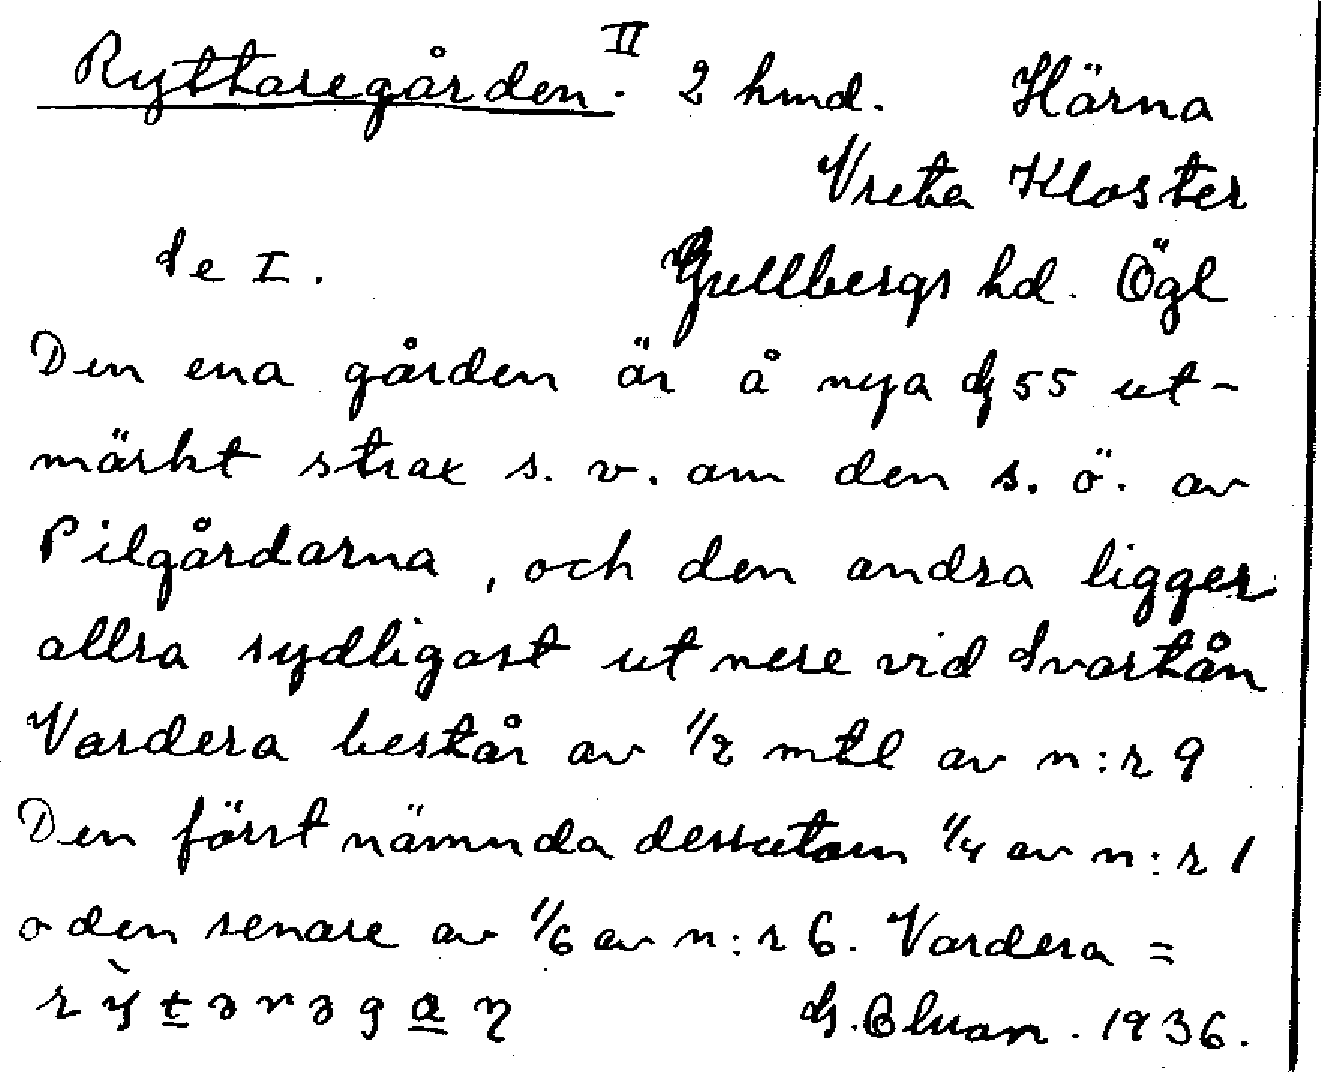 Ryttaregården. II 2 hmd. Härna
Vreta Kloster
Se I. Gullbergs hd. Ögl
Den ena gården är å nya G 55 ut-
märkt strax s. v. om den s. ö. av
Pilgårdarna, och den andra ligger
allra sydligast ut nere vid Svartån
Vardera består av 1/2 mtl av n:r 9
Den förstnämnda dessutom 1/4 av n:r 1
o den senare av 1/6 av n:r 6. Vardera =
1936.